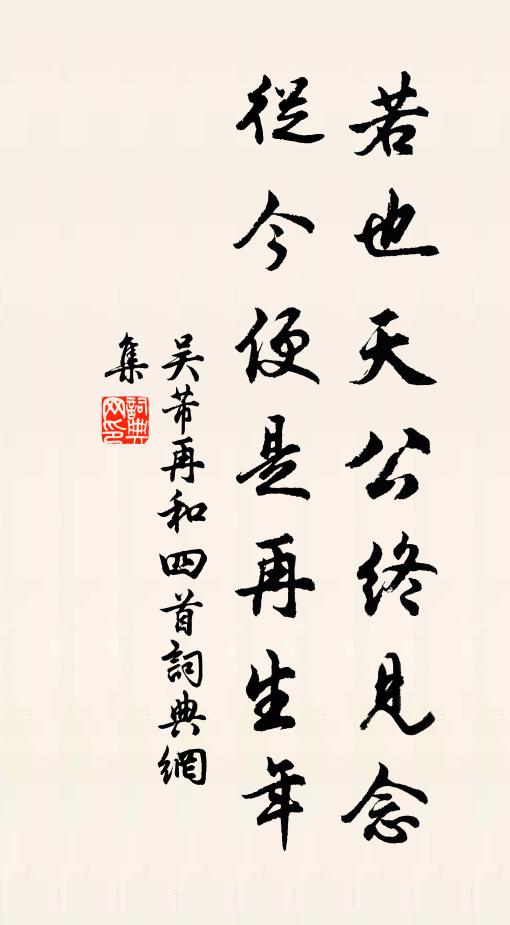 若也天公終見念
從今便是再生年
吴芾再和四首詞典網
集
詞典网印